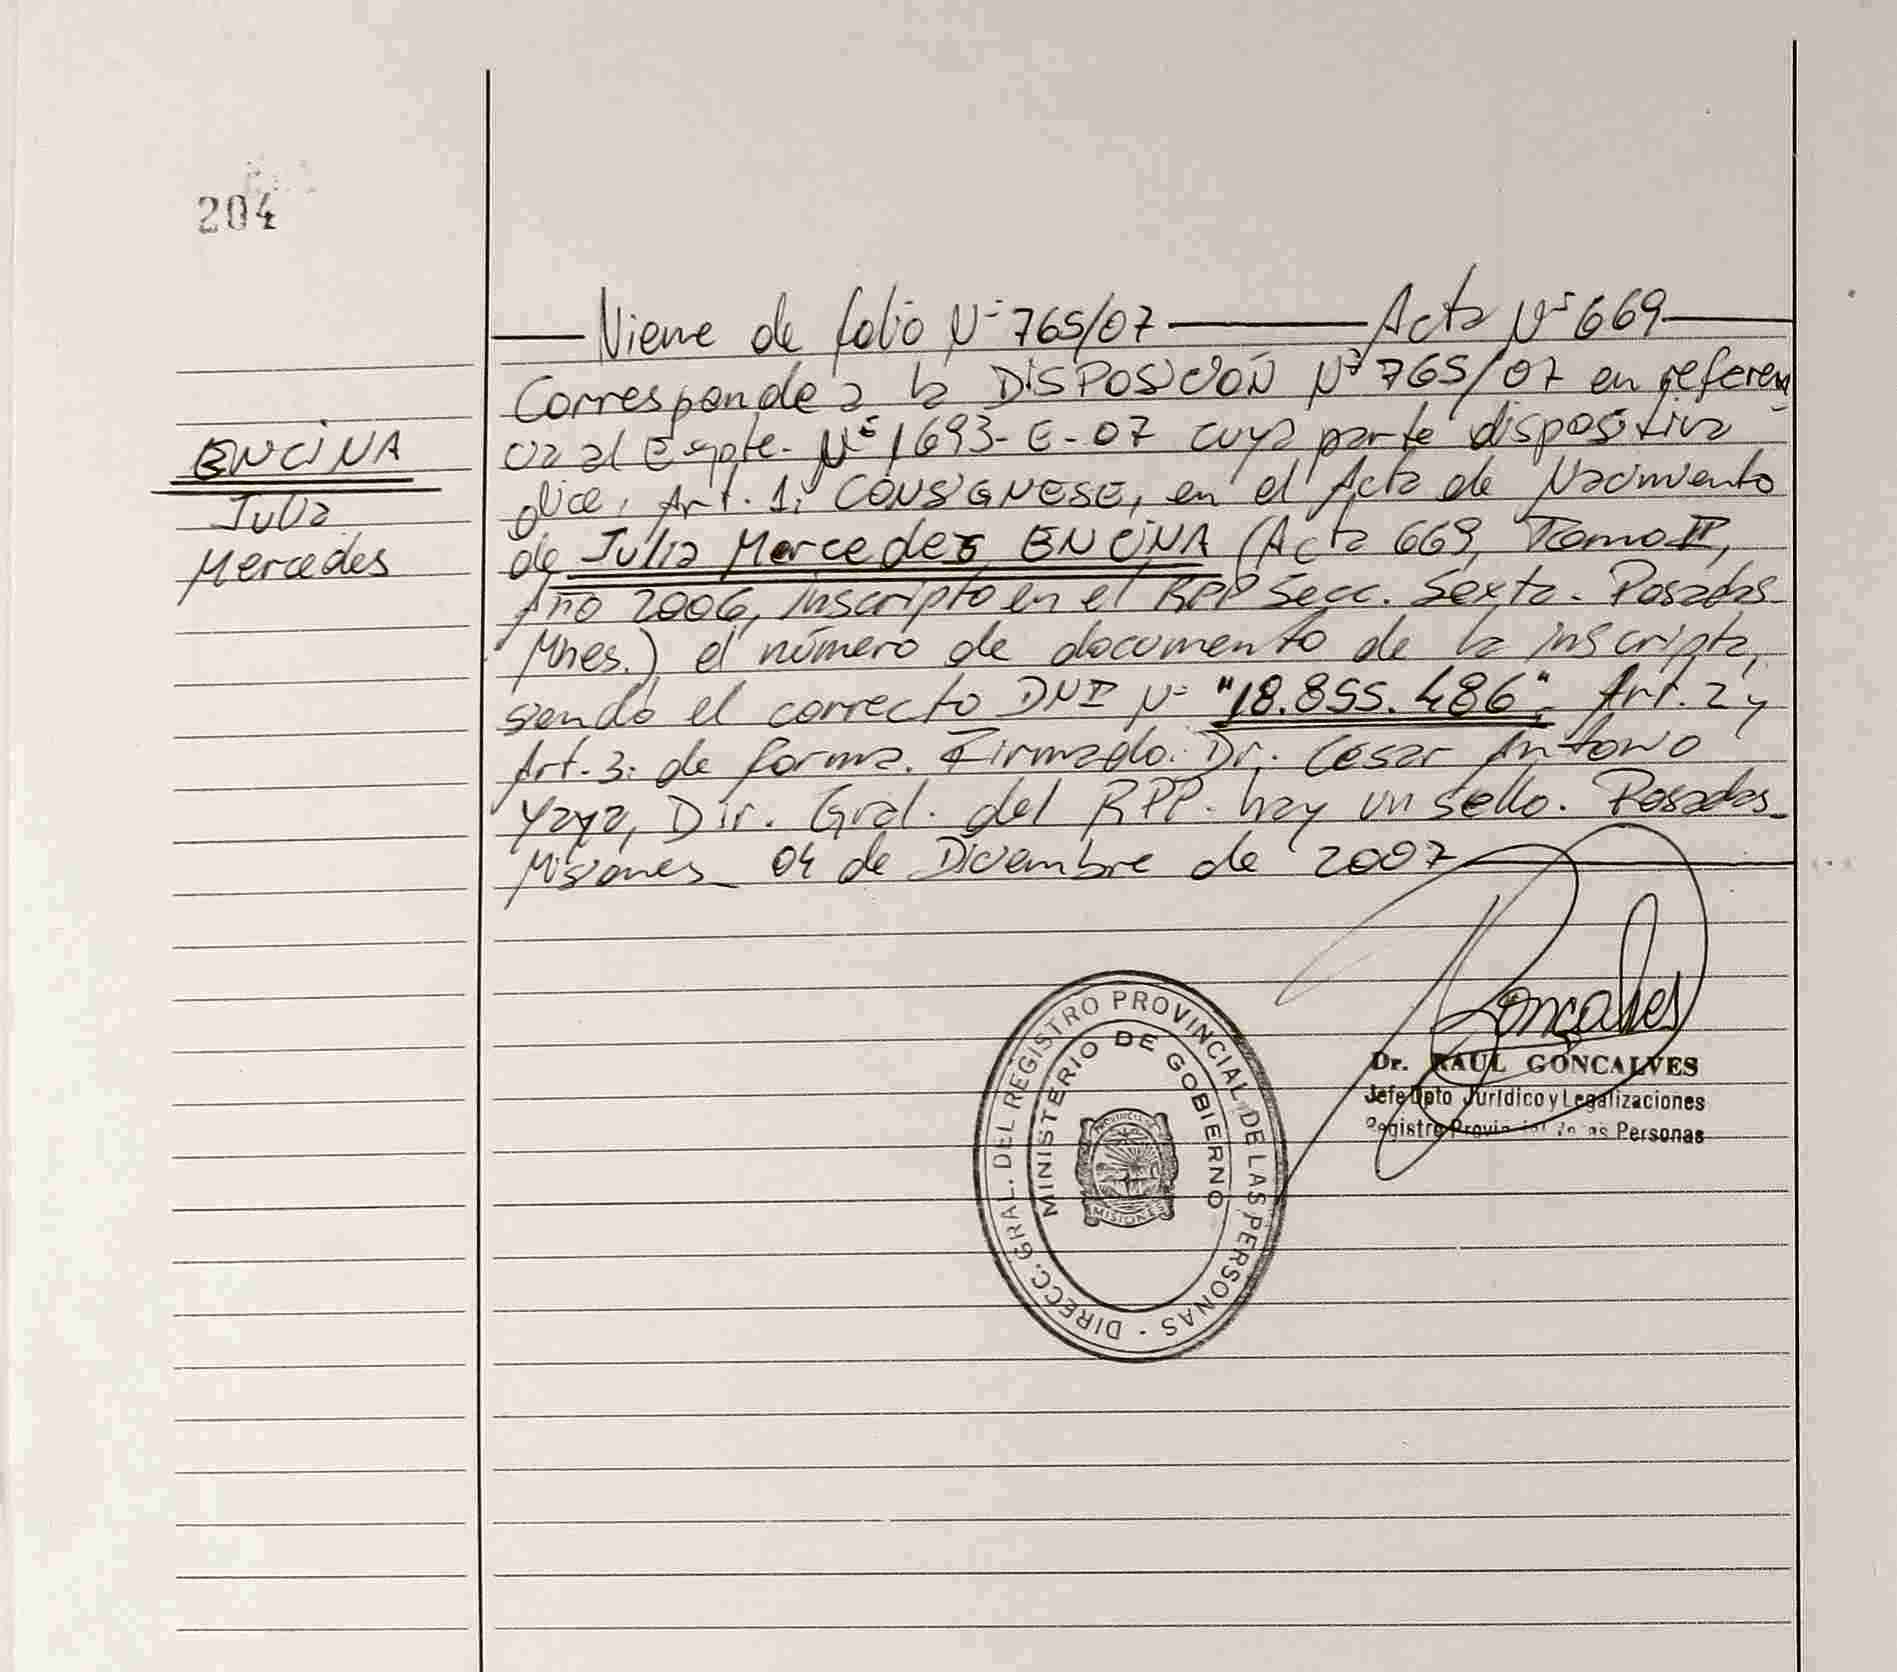 204
Viene de folio N° 765/07 Acta N° 669
Corresponde a la DISPOSICIÓN N° 765/07 en referen
cia al Expte. N° 1693-E-07 cuya parte dispositiva
dice, Art. 1: CONSIGNESE, en el Acta de Nacimiento
de Julia Mercedes ENCINA (Acta 669, Tomo II,
Año 2006, inscripto en el RPP Secc. Sexta. Posadas
Mnes.) el número de documento de la inscripta,
siendo el correcto DNI N° "18.855.486". Art. 2 y
Art. 3: de forma. Firmado: Dr. Cesar Antonio
Yaya, Dir. Gral. del RPP. hay un sello. Posadas_
Misiones_ 04 de Diciembre de 2007
ENCINA
Julia
Mercedes
Goncalves
Dr. RAUL GONCALVES
Jefe Dpto Jurídico y Legalizaciones
Registro Provincial de las Personas
DIRECC. GRAL. DEL REGISTRO PROVINCIAL DE LAS PERSONAS -
MINISTERIO DE GOBIERNO
MISIONES